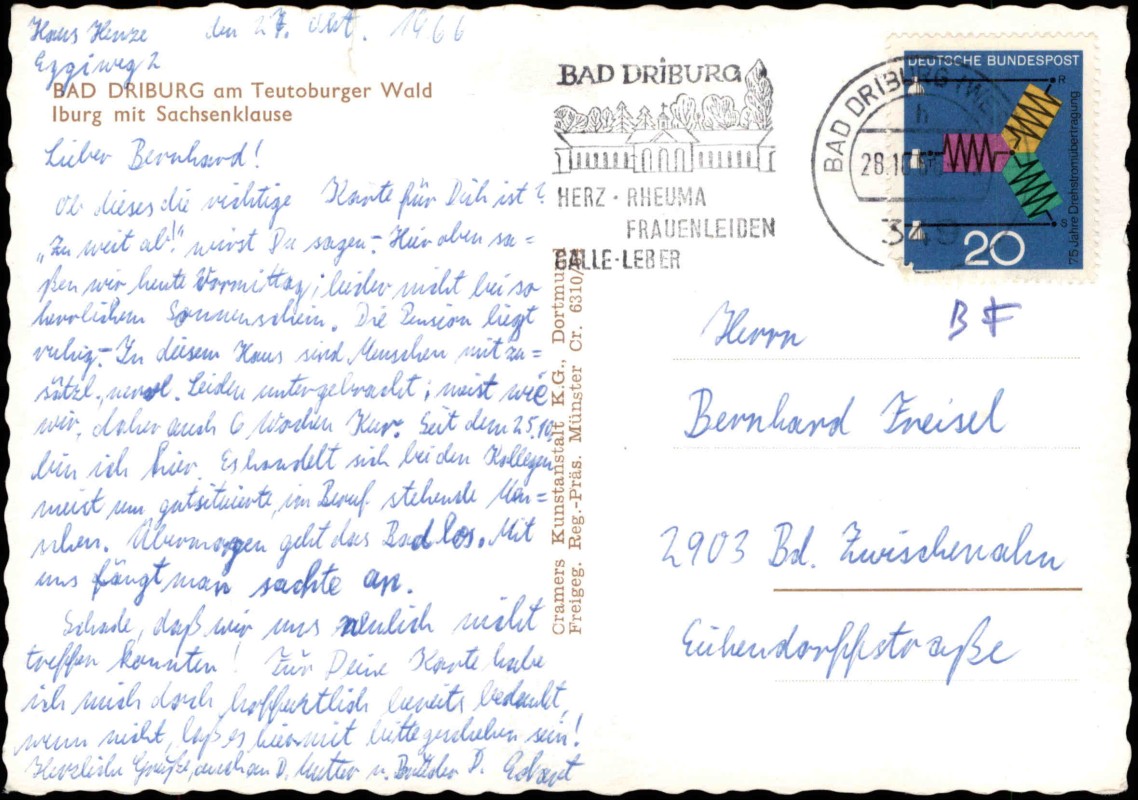 Haus Henze den 27. Okt. 1966
Eggiweg 2
BAD DRIBURG am Teutoburger Wald
Iburg mit Sachsenklause
Lieber Bernhard!
Ob dieses die richtige Karte für Dich ist?
„Zu weit ab!" wirst Du sagen. – Hier oben sa=
ßen wir heute Vormittag; leider nicht bei so
herrlichem Sonnenschein. Die Pension liegt
ruhig. – In diesem Haus sind Menschen mit zu=
sätzl. nervl. Leiden untergebracht; meist wie
wir, daher auch 6 Wochen Kur. Seit dem 25.10.
bin ich hier. Es handelt sich bei den Kollegen
meist um gutsituierte, im Beruf stehende Men=
schen. Übermorgen geht das Bad los. Mit
uns fängt man sachte an.
Schade, daß wir uns neulich nicht
treffen konnten! Für Deine Karte habe
ich mich doch hoffentlich bereits bedankt,
wenn nicht, laß es hiermit bitte geschehen sein!
Herzliche Grüße, auch an D. Mutter u. Brüder D.
Cramers Kunstanstalt K.G., Dortmund
Freigeg. Reg.-Präs. Münster Cr. 6310/
BAD DRIBURG
HERZ · RHEUMA
FRAUENLEIDEN
GALLE · LEBER
BAD DRIBURG (WE
h
28.10.66
349
DEUTSCHE BUNDESPOST
R
S
75 Jahre Drehstromübertragung
20
B F
Herrn
Bernhard Freisel
2903 Bd. Zwischenahn
Eichendorffstraße